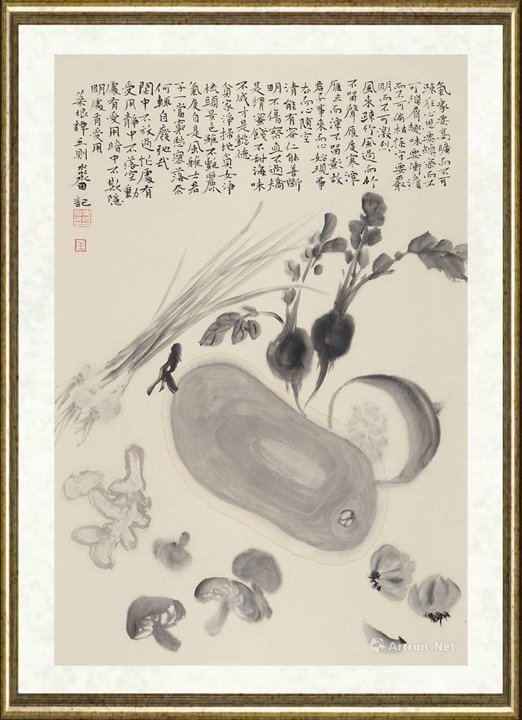 氣象要高曠而不可
疎狂心思要縝密而不
可瑣屑趣味要冲淡
而不可偏枯操守要嚴
明而不可激烈
風來疎竹風過而竹
不留聲雁度寒潭
雁去而潭不留影故
君子事來而心始現事
去而心隨空
清能有容仁能善斷
明不傷察直不過矯
是謂蜜餞不甜海味
不咸才是懿德
貧家淨掃地貧女淨
梳頭景色雖不艷麗
氣度自是風雅士君
子一當窮愁寥落奈
何輒自廢弛哉
閑中不放過忙處有
受用靜中不落空動
處有受用暗中不欺隱
明處有受用
菜根譚五則 淼田記
Artron.Net